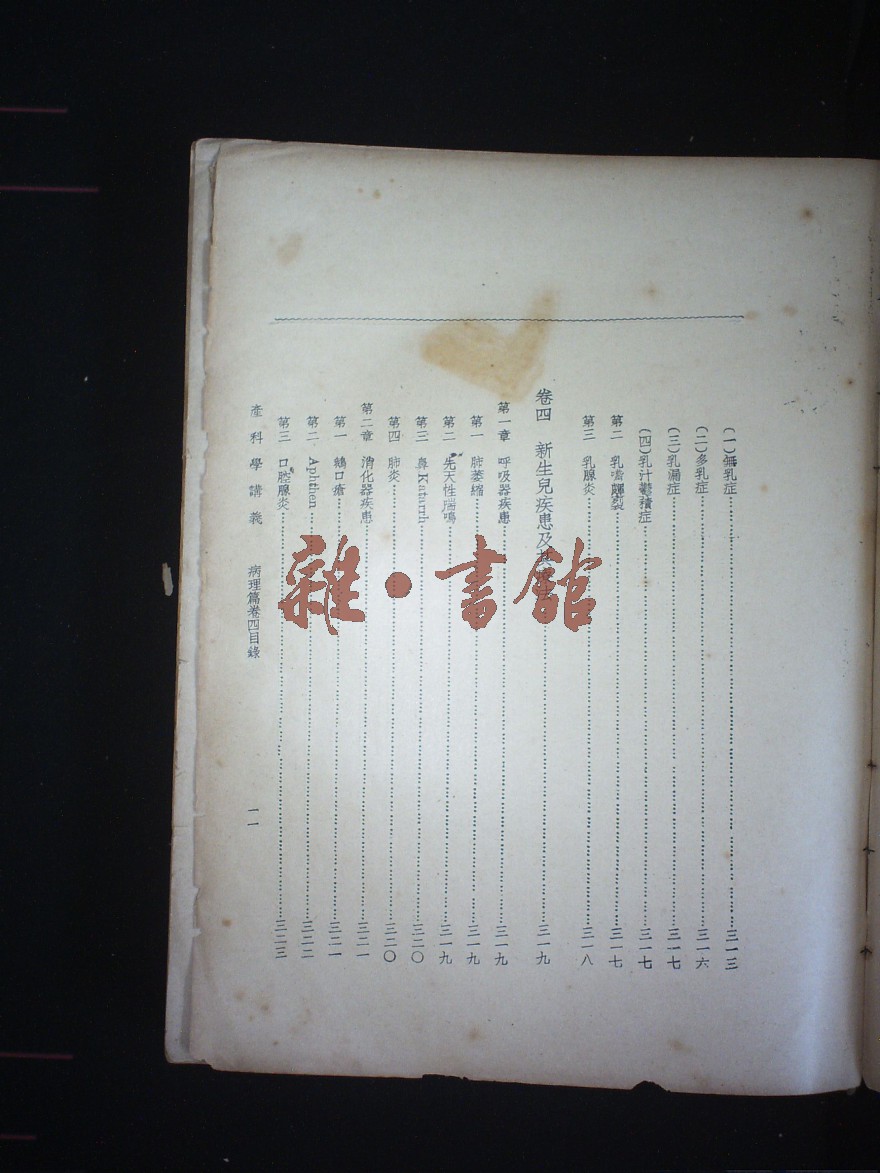 (一)無乳症 三一三
(二)多乳症 三一六
(三)乳漏症 三一七
(四)乳汁鬱積症 三一七
第二 乳嘴皸裂 三一七
第三 乳腺炎 三一八
卷四 新生兒疾患及 三一九
第一章 呼吸器疾患 三一九
第一 肺萎縮 三一九
第二 先天性喘鳴 三一九
第三 鼻Katarrh 三二〇
第四 肺炎 三二〇
第二章 消化器疾患 三二一
第一 鵝口瘡 三二一
第二 Aphthen 三二二
第三 口腔腺炎 三二三
產科學講義 病理篇卷四目錄 一一
雜·書館